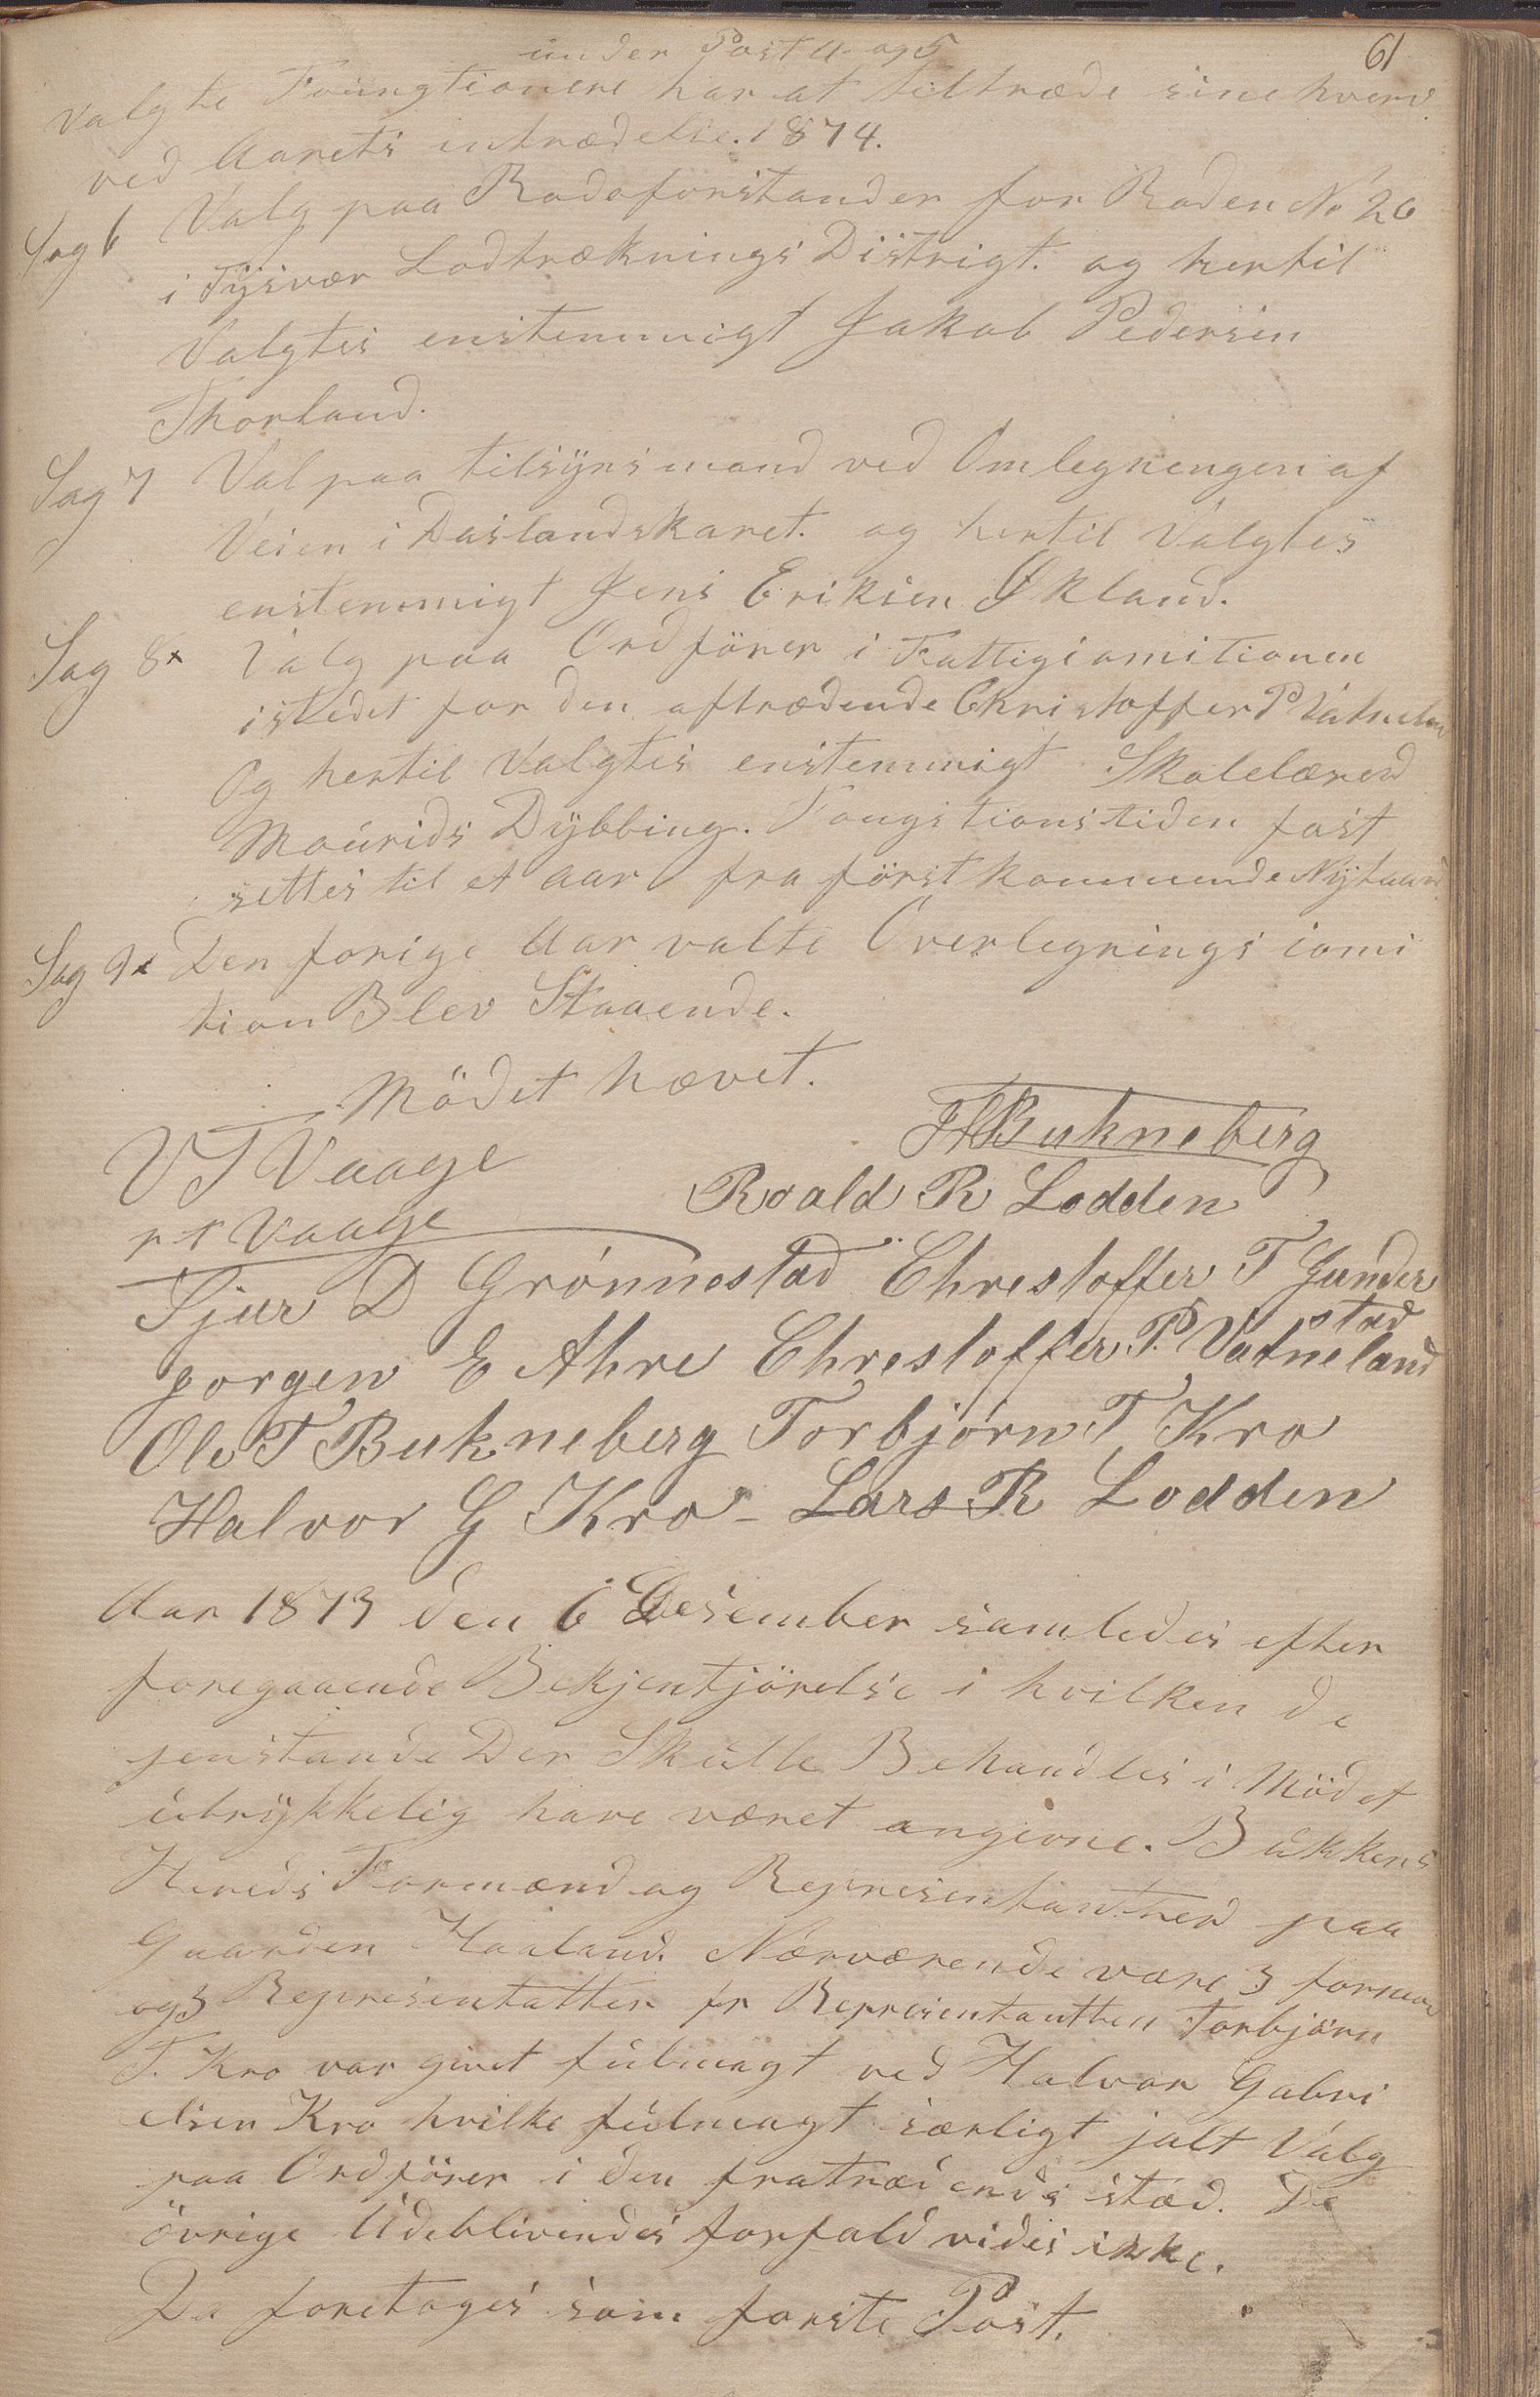 61
under Post 4 og 5
valgte Foungtionere har at tiltræde sine hverv
ved Aarets intrædelse. 1874.
Sag 6 Valg paa Rodeforstander for Roden No 26
i Tysvær Lodtræknings Distrigt. og hertil
Valgtes enstemmigt Jakob Pedersen
Thorland.
Sag 7 Val paa tilsynsmand ved Omlegnengen af
Veien i Daslandskaret. og hertil Valgtes
enstemmigt Jens Eriksen Økland.
Sag 8x Valg paa Ordförer i Fattigcomitionen
istedet for den aftrædende Christoffer P Vatnelan
Og hertil Valgtes enstemmigt Skolelærer
Maurids Dybbing. Foungstionstiden fast
settes til et aar fra förstkommende Nytaar
Sag 9x Den forige Aar valte Overlegnings comi
tion Blev Staaende.
Mödet hævet.
H Bukneberg
V T Vaage
Roald R Lodden
Vaage
Sjur D Grønnestad Chrestoffer T Gunder
stad
Jorgen E Ahre Chrestoffer P. Vatneland
Ole T Bukneberg Torbjørn T Kro
Halvor G Kro - Lars R Lodden
Aar 1873 den 6 Desember samledes efter
foregaaende Bekjentjörelse i hvilken de
jenstande Der Skulle Behandles i Mödet
utrykkelig have været angivne. Bukkens
Hereds Formænd og Represantanther paa
Gaarden Haaland. Nærværende vare 3 formæn
og 3 Represantatter fr Represantanthen Torbjörn
T. Kro var givet fulmagt ved Halvor Gabri
elsen Kro hvilke fulmagt særligt jalt Valg
paa Ordförer i den fratrædendes stæd. De
övrige Udeblivendes forfald vides ikke.
Da foretoges som forste Post.